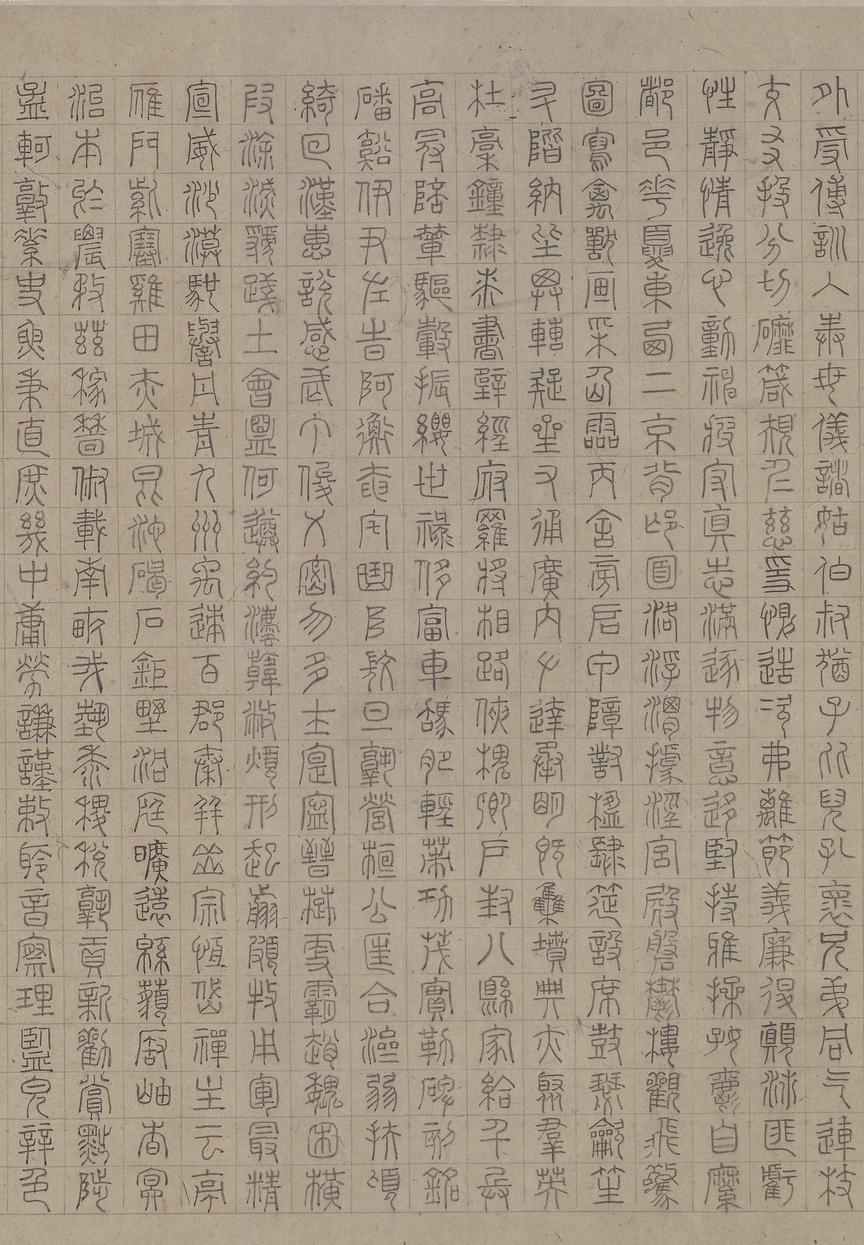 外受傅訓入奉母儀諸姑伯叔猶子比兒孔懷兄弟同气連枝
交友投分切磨箴規仁慈隱惻造次弗離節義廉退顛沛匪虧
性靜情逸心動神疲守真志滿逐物意移堅持雅操好爵自縻
都邑華夏東西二京背邙面洛浮渭據涇宮殿盤鬱樓觀飛驚
圖寫禽獸画采仙靈丙舍旁启甲障對楹肆筵設席鼓瑟龡笙
升階納陛弁轉疑星右通廣內左達承明既集墳典亦聚羣英
杜稾鐘隸桼書壁經府羅將相路俠槐卿戶封八縣家給千兵
高冠陪輦驅轂振纓世祿侈富車駕肥輕策功茂實勒碑刻銘
磻谿伊尹左時阿衡奄宅曲阜微旦孰營桓公匡合濟弱扶傾
綺回漢惠說感武丁俊乂密勿多士寔寧晉楚更霸趙魏困橫
假涂滅虢踐土會盟何遵約法韓弊煩刑起翦頗牧用軍最精
宣威沙漠馳譽丹青九州禹跡百郡秦并嶽宗恒岱禪主云亭
雁門紫塞雞田赤城昆池碣石鉅野洞庭曠遠緜邈巖岫杳冥
治本於農務茲稼穡俶載南畝我藝黍稷稅孰貢新勸賞黜陟
孟軻敦素史魚秉直庶幾中庸勞謙謹敕聆音察理監皃辨色